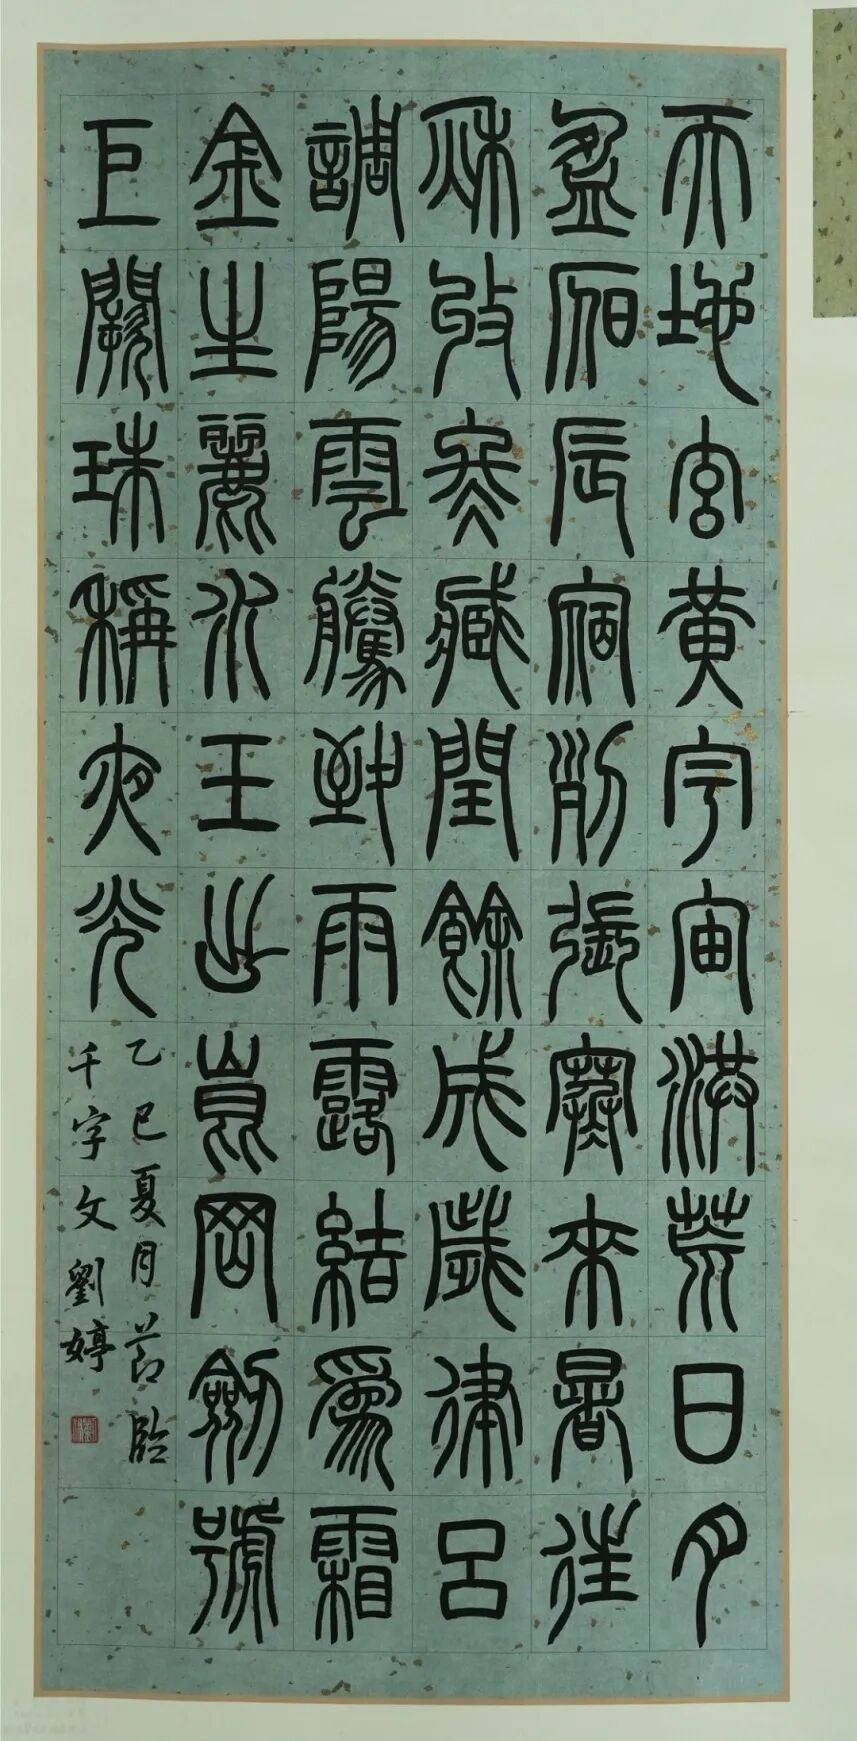 天地玄黃宇宙洪荒日月
盈昃辰宿列張寒來暑往
秋收冬藏閏餘成歲律呂
調陽雲騰致雨露結爲霜
金生麗水玉出崑岡劒號
巨闕珠稱夜光
乙巳夏月節臨
千字文劉婷